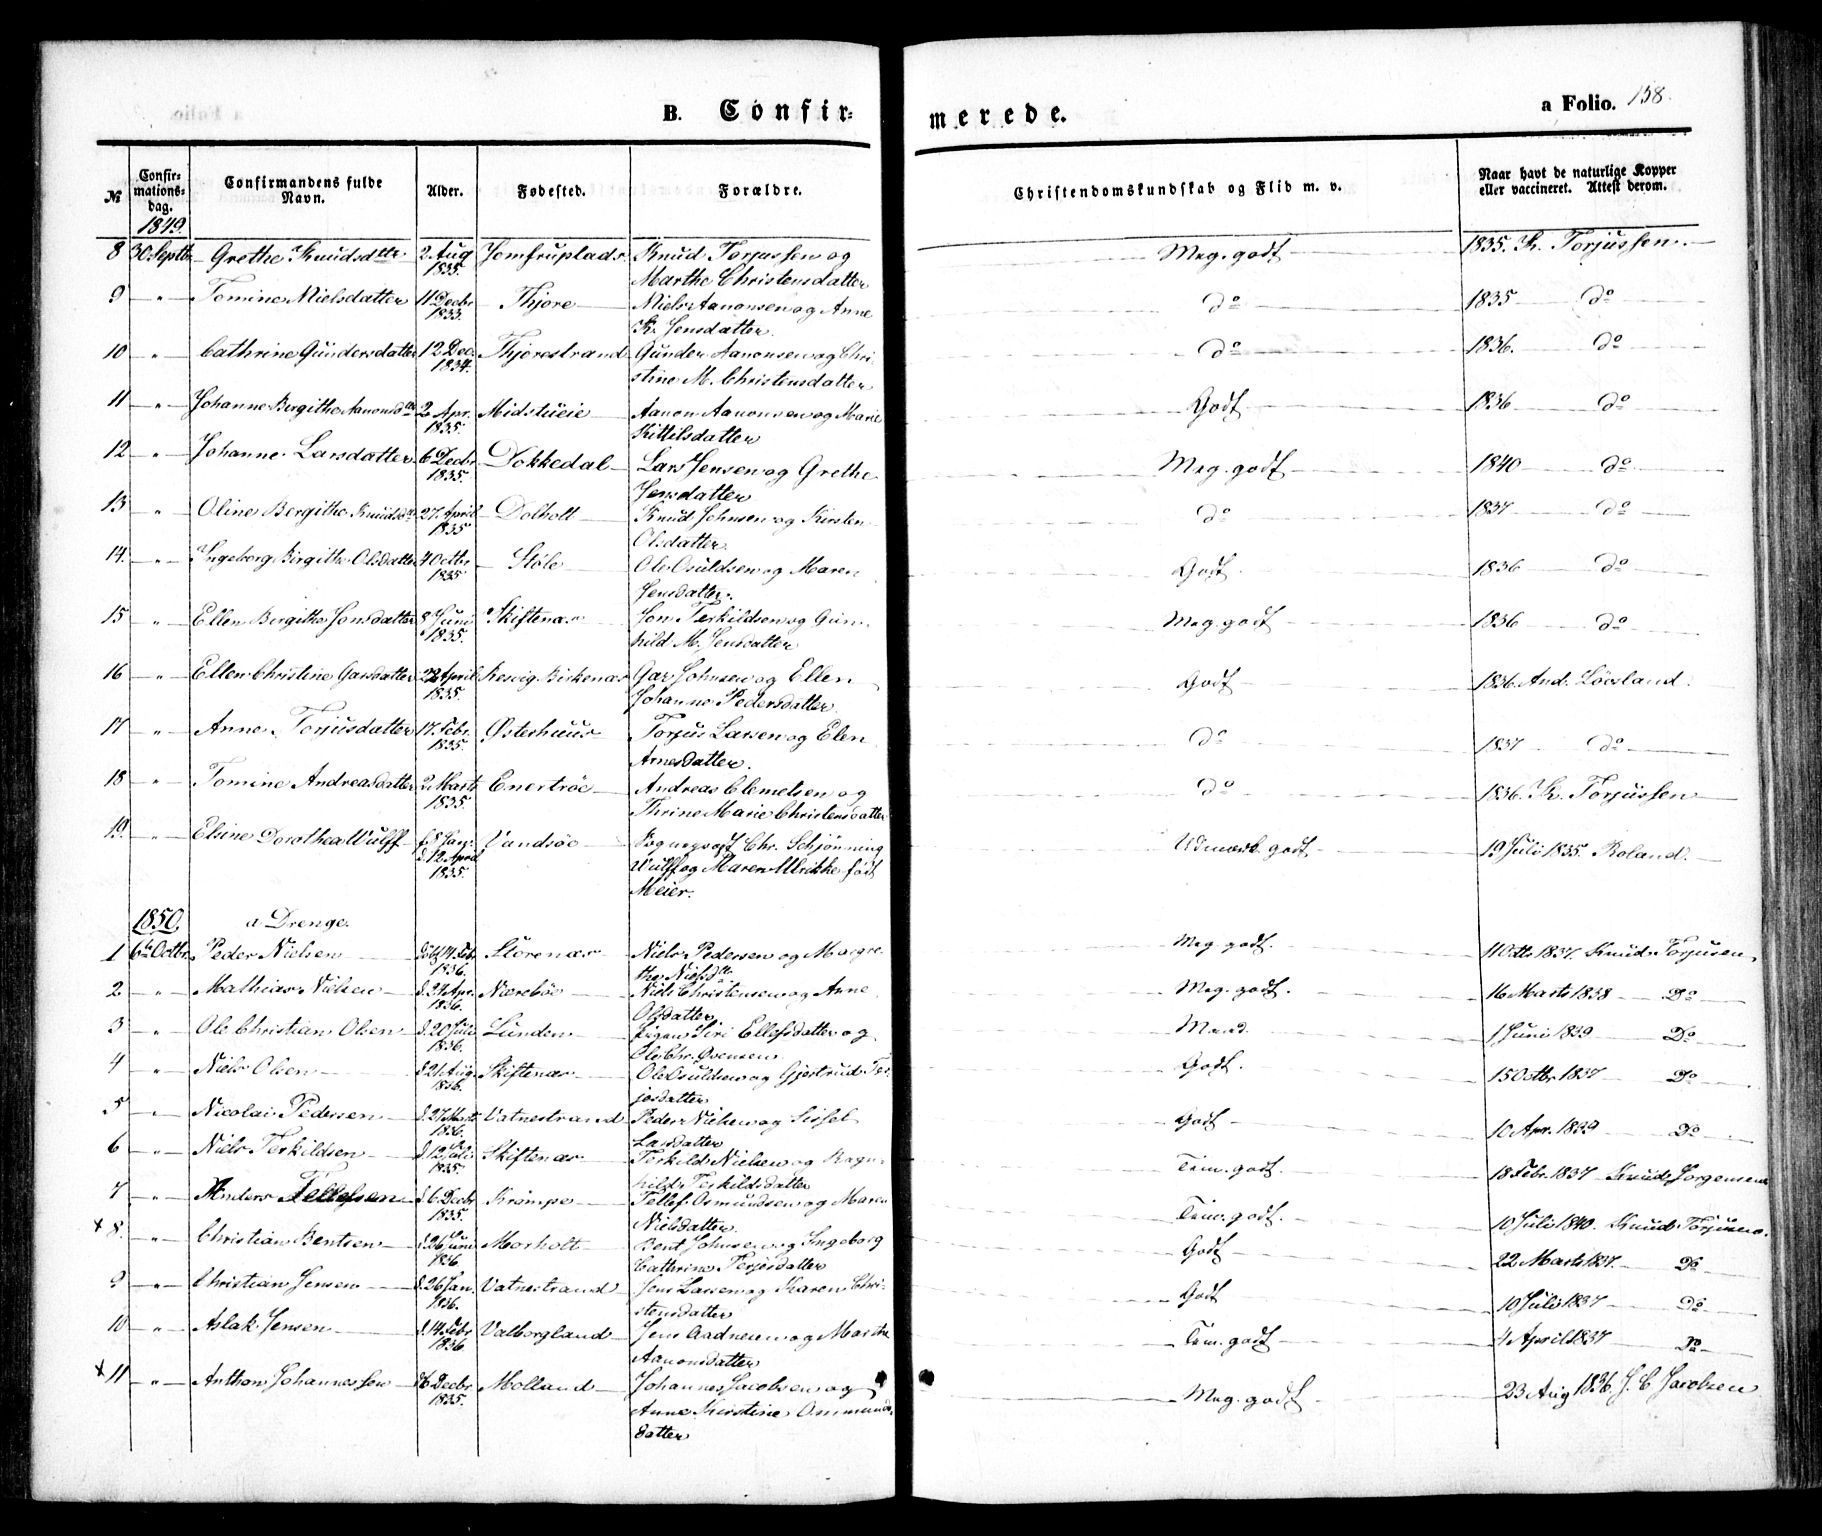 B. Confirmerede. a Folio. 138.
№ Confirmationsdag. Confirmandens fulde Navn. Alder. Fødested. Forældre. Christendomskundskab og Flid m. v. Naar havt de naturlige Kopper eller vaccineret. Attest derom.
1849.
8 30 Septbr Grethe Knudsdttr. 2 Aug 1835. Jomfruplads Knud Torjussen og Marthe Christensdatter Meg. godt 1835. K. Torjussen.
9 " Tomine Nielsdatter 11 Decbr 1833. Thjøre Niels Aanonsen og Anne K. Jensdatter. do 1835 do
10 " Cathrine Gundersdatter 12 Dec. 1834. Thjørestrand Gunder Aanonsen og Christine M. Christensdatter do 1836. do
11 " Johanne Bergithe Aanonsdttr 2 Apr. 1835. Midstueie Aanon Aanonsen og Marie Kittilsdatter Godt 1836 do
12 " Johanne Larsdatter 6 Decbr 1835. Dokkedal Lars Jensen og Grethe Jensdatter Meg. godt 1840 do
13 " Oline Bergithe Knudsdtr 27 April 1835 Dolholt Knud Johnsen og Kirsten Olsdatter do 1837 do
14. " Ingeborg Birgithe Olsdatter 4 Octbr 1835 Støle Ole Osuldsen og Maren Jensdatter. Godt 1836 do
15 " Ellen Bergithe Jonsdatter 8 Juni 1835. Skiftenæs Jon Terkildsen og Gunhild M. Jensdatter Meg. godt 1836 do
16 " Ellen Christine Garsdatter 22 April 1835. Birkenæs Gar Johnsen og Ellen Johanne Pedersdatter. Godt 1836. And. Løvsland.
17 " Anne Torjusdatter 17 Febr. 1835. Østerhuus Torjus Larsen og Elen Arnesdatter. do 1837 do
18 " Tomine Andreasdatter 2 Marts 1835. Enertrøe Andreas Clemetsen og Thrine Marie Christensdatter do 1836. K. Torjussen
19. " Elsine Dorothea Wulff f. 8 Jan. d. 12 April 1835. Vandsøe Chr. Schjønning Wulff og Maren Ulrikke født Meier. Udmærk. godt 19 Juli 1835. Roland.
1850. a Drenge.
1 6te Octbr. Peder Nielsen 14 Febr 1836. Storenæs Niels Pedersen og Margrethe Nielsdtr Meg. godt. 11 Octb 1837. Knud Torjusen
2 " Mathias Nielsen d. 27 Apr. 1836. Nærebøe Niels Christensen og Anne Olsdatter Meg. godt. 16 Marts 1838 Do
3 " Ole Christian Olsen d. 20 Juli 1836. Lunden Pigen Siri Ellefsdatter og Ole Chr. Svensen 1 Juni 1839 Do
4 " Niels Olsen d. 21 Aug. 1836. Skiftenæs Ole Osuldsen og Gjertrud Terjesdatter Godt. 15 Octbr. 1837 Do
5 " Nicolai Pedersen d. 27 Marts 1836. Vatnestrand Peder Nielsen og Sissel Larsdatter Godt 10 Apr. 1839 Do
6 " Niels Terkildsen d. 12 Juli 1835. Skiftenæs Terkild Nielsen og Ragnhild Terkildsdatter Tem. godt. 18 Febr. 1837 Knud Jørgensen
7 " Anders Tellefsen d. 6 Decbr 1835. Krømpe Tellef Osmundsen og Maren Nielsdatter. Tem. godt. 10 Juli 1840. Knud Torjusen.
x 8. " Christian Bentsen d. 26 Juni 1836 Morholt Bent Johnsen og Ingeborg Cathrine Terjesdatter Godt 22 Marts 1837. Do
9 " Christian Jensen d. 26 Jan. 1836. Vatnestrand Jens Larsen og Karen Christensdatter Godt 10 Juli 1837 Do
10 " Aslak Jensen d. 14 Febr 1836 Valborgland Jens Aadnesen og Marthe Aanonsdatter Tem. godt 4 April 1837 Do
x 11 " Anthon Johannessen d. 6 Decbr 1835. Molland Johannes Jacobsen og Anne Kirstine Ommundsdatter Meg. godt 23 Aug 1836. J. C. Jacobsen